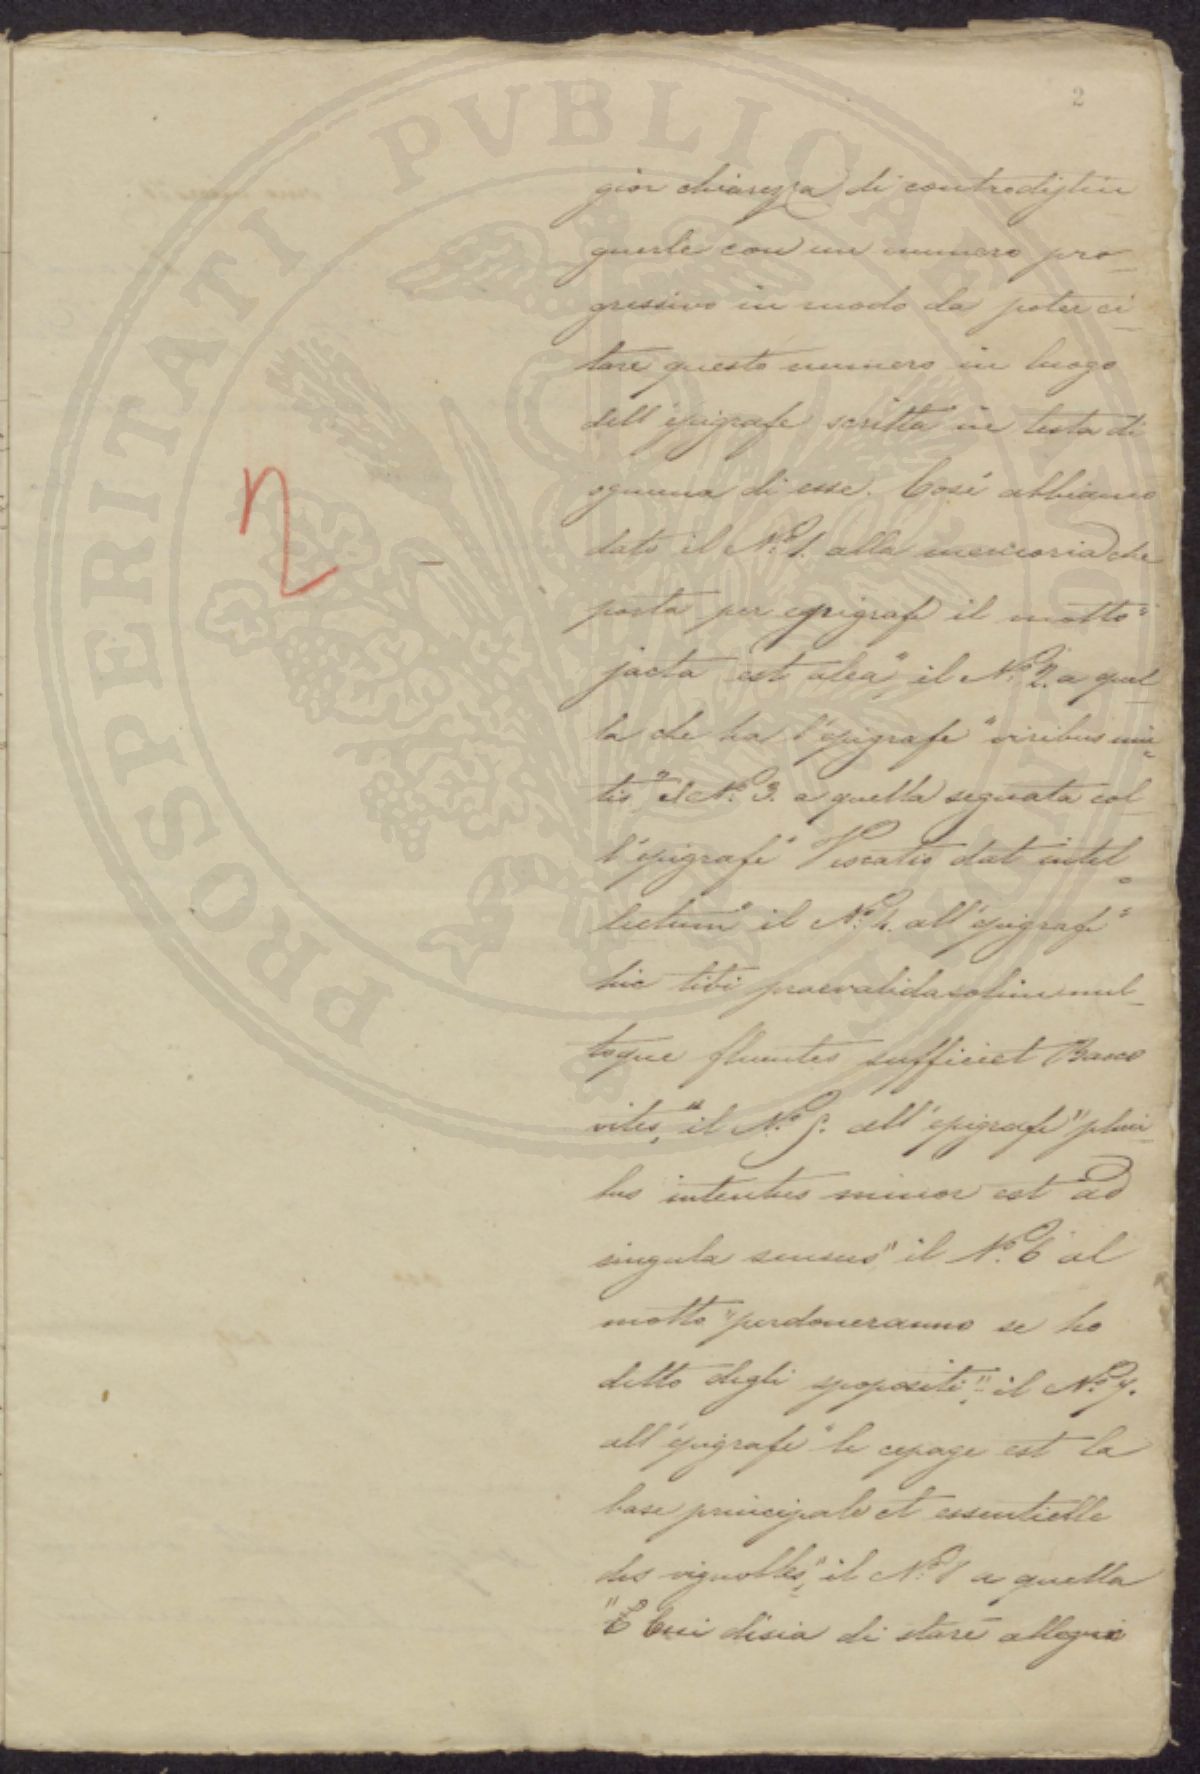 2
gior chiarezza di contradistin
guerle con un numero pro-
gressivo in modo da poter ci-
tare questo numero in luogo
dell'epigrafe scritta in testa di
ognuna di esse. Cosí abbiamo
dato il N.o 1. alla memoria che
porta per epigrafe il motto "
jacta est alea", il N.o 2. a quel-
la che ha l'epigrafe "viribus uni-
tis", il N.o 3. a quella segnata col-
l'epigrafe "Vexatio dat intel-
lectum" il N.o 4. all'epigrafe "
hic tibi praevalidas olim mul-
toque fluentes sufficiet Bacco
vites," il N.o 5. all'epigrafe "pluri-
bus intentus minor est ad
singula sensus" il N.o 6 al
motto "perdoneranno se ho
detto degli spropositi," il N.o 7.
all'epigrafe "le cepage est la
base principale et essentielle
des vignobles," il N.o 8 a quella
"E Cui disia di stare allegri
2
PROSPERITATI PVBLICAE